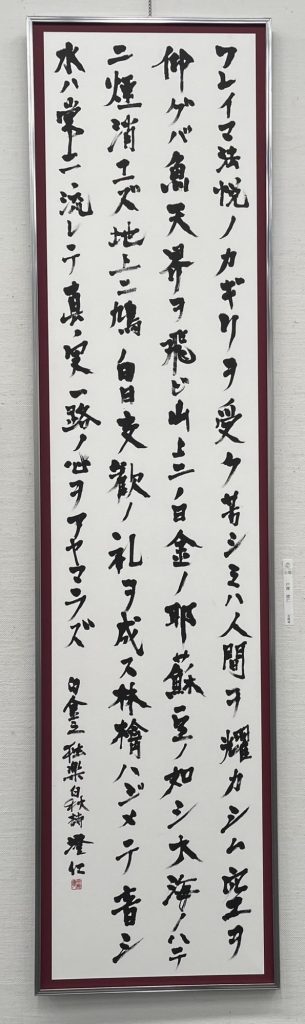 ワレイマ法悦ノカギリヲ受ク苦シミハ人間ヲ耀カシム空ヲ
仰ゲバ魚天界ヲ飛ビ山上ニ白金ノ耶蘇豆ノ如シ大海ノハテ
ニ煙消エズ地上ニ鳩白日交歓ノ礼ヲ成ス林檎ハジメテ音シ
水ハ常ニ流レテ真実一路ノ心ヲアヤマラズ
白金ノ独楽白秋詩 澄仁